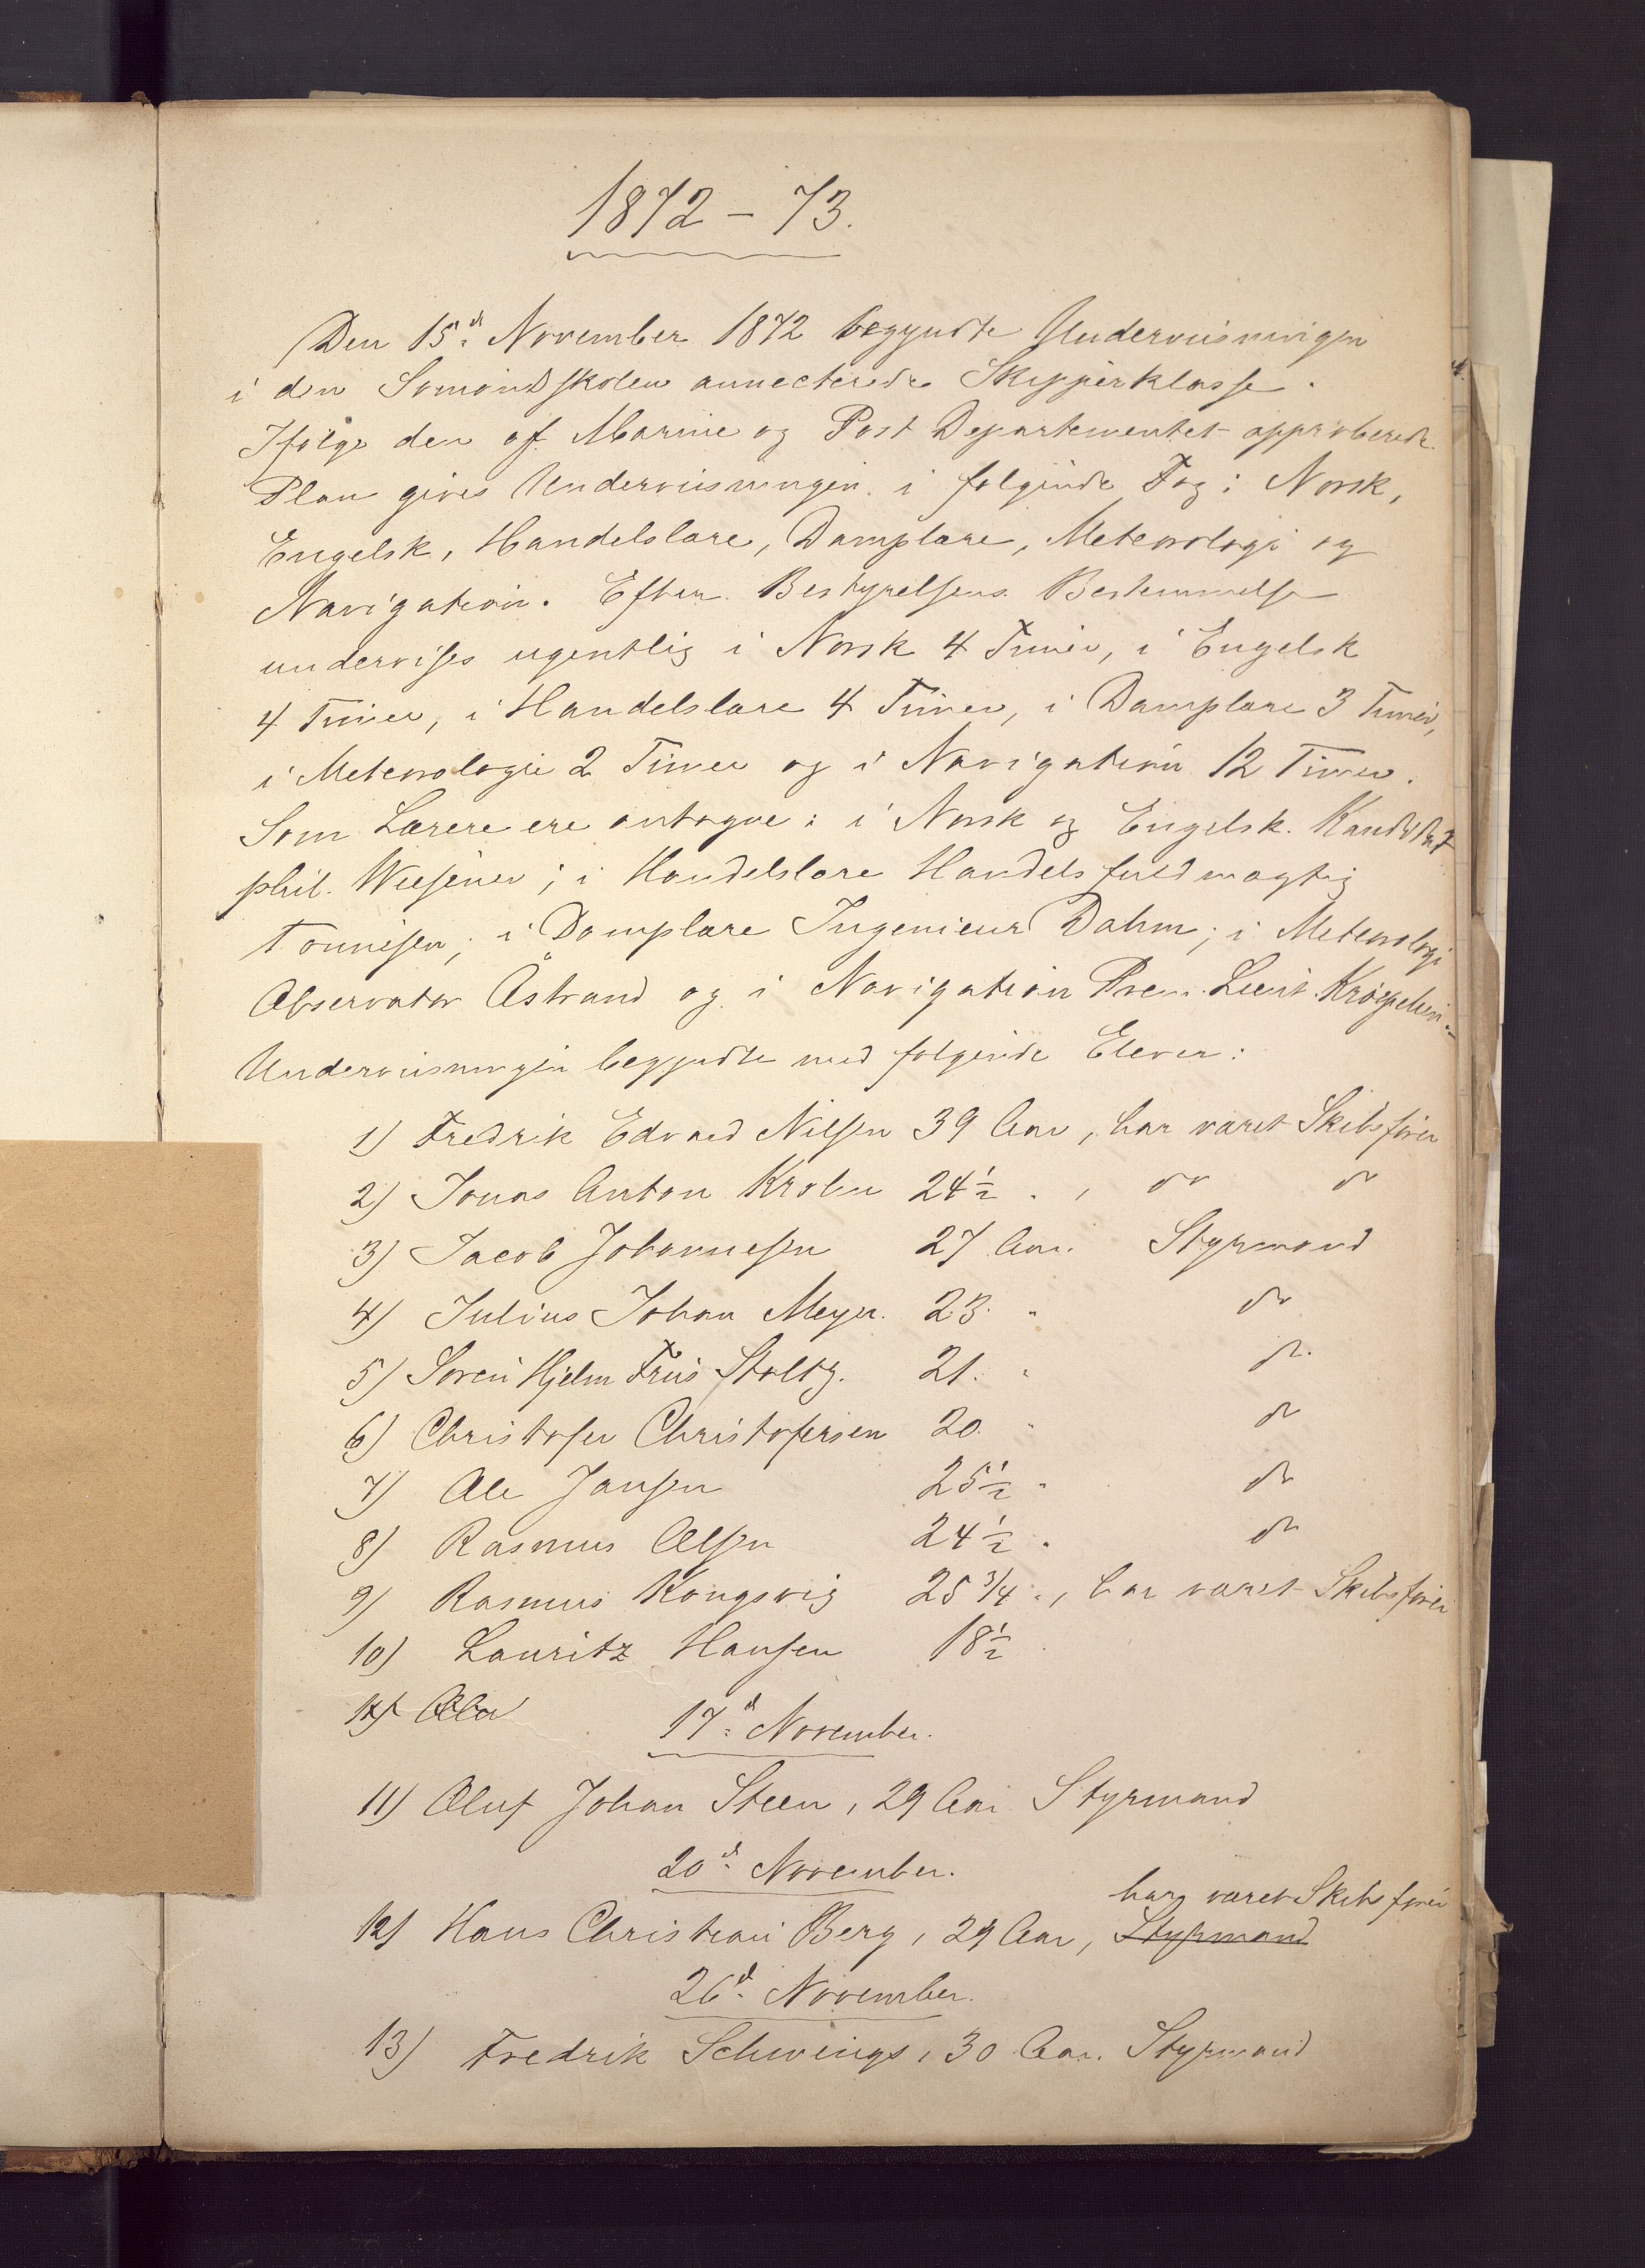 1872 – 73.
Den 15d: November 1872 begyndte Underviisningen
i den Sømandsskolen annecterede Skipperklasse.
Ifølge den af Marine og Post Departementet approberede
Plan gives Underviisningen i følgende Fag: Norsk,
Engelsk, Handelslære, Damplære, Meteorologi og
Navigation. Efter Bestyrelsens Bestemmelse
undervises ugentlig i Norsk 4 Timer, i Engelsk
4 Timer, i Handelslære 4 Timer, i Damplære 3 Timer,
i Meteorologie 2 Timer og i Navigation 12 Timer.
Som Lærere ere antagne: i Norsk og Engelsk. Kandidat
phil. Wiesener; i Handelslære Handelsfuldmægtig
Tønnesen; i Damplære Ingenieur Dahm; i Meteorologi
Observator Åstrand og i Navigation Prem. Lieut. Krøepelien.
Underviisningen begyndte med følgende Elever:
1) Fredrik Edvard Nilsen 39 Aar, har været Skibsfører
2) Jonas Anton Krohn 24½ " , do do
3) Jacob Johannesen 27 Aar. Styrmand
4) Julius Johan Meyer. 23. " do
5) Søren Hjelm Friis Stoltz. 21. " do
6) Christofer Christofersen 20. " do
7) Ole Jansen 25½ " do
8) Rasmus Olsen 24½ " do
9) Rasmus Kongsvig 25 3/4 ", har været Skibsfører
10) Lauritz Hansen 18½
11) Ola
17d: November.
11) Oluf Johan Steen, 29 Aar. Styrmand
20d: November.
har været Skibsfører
12) Hans Christian Berg, 29 Aar, Styrmand
26d: November.
13) Fredrik Schwings, 30 Aar. Styrmand